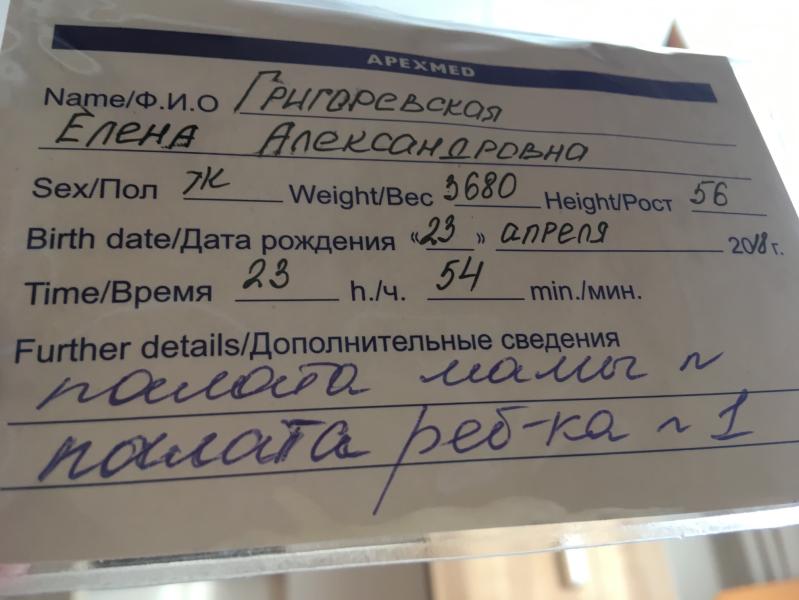 APEXMED
Name/Ф.И.О Григоревская
Елена Александровна
Sex/Пол ж Weight/Вес 3680 Height/Рост 56
Birth date/Дата рождения «23» апреля 2018 г.
Time/Время 23 h./ч. 54 min./мин.
Further details/Дополнительные сведения
палата мамы ~
палата реб-ка ~ 1